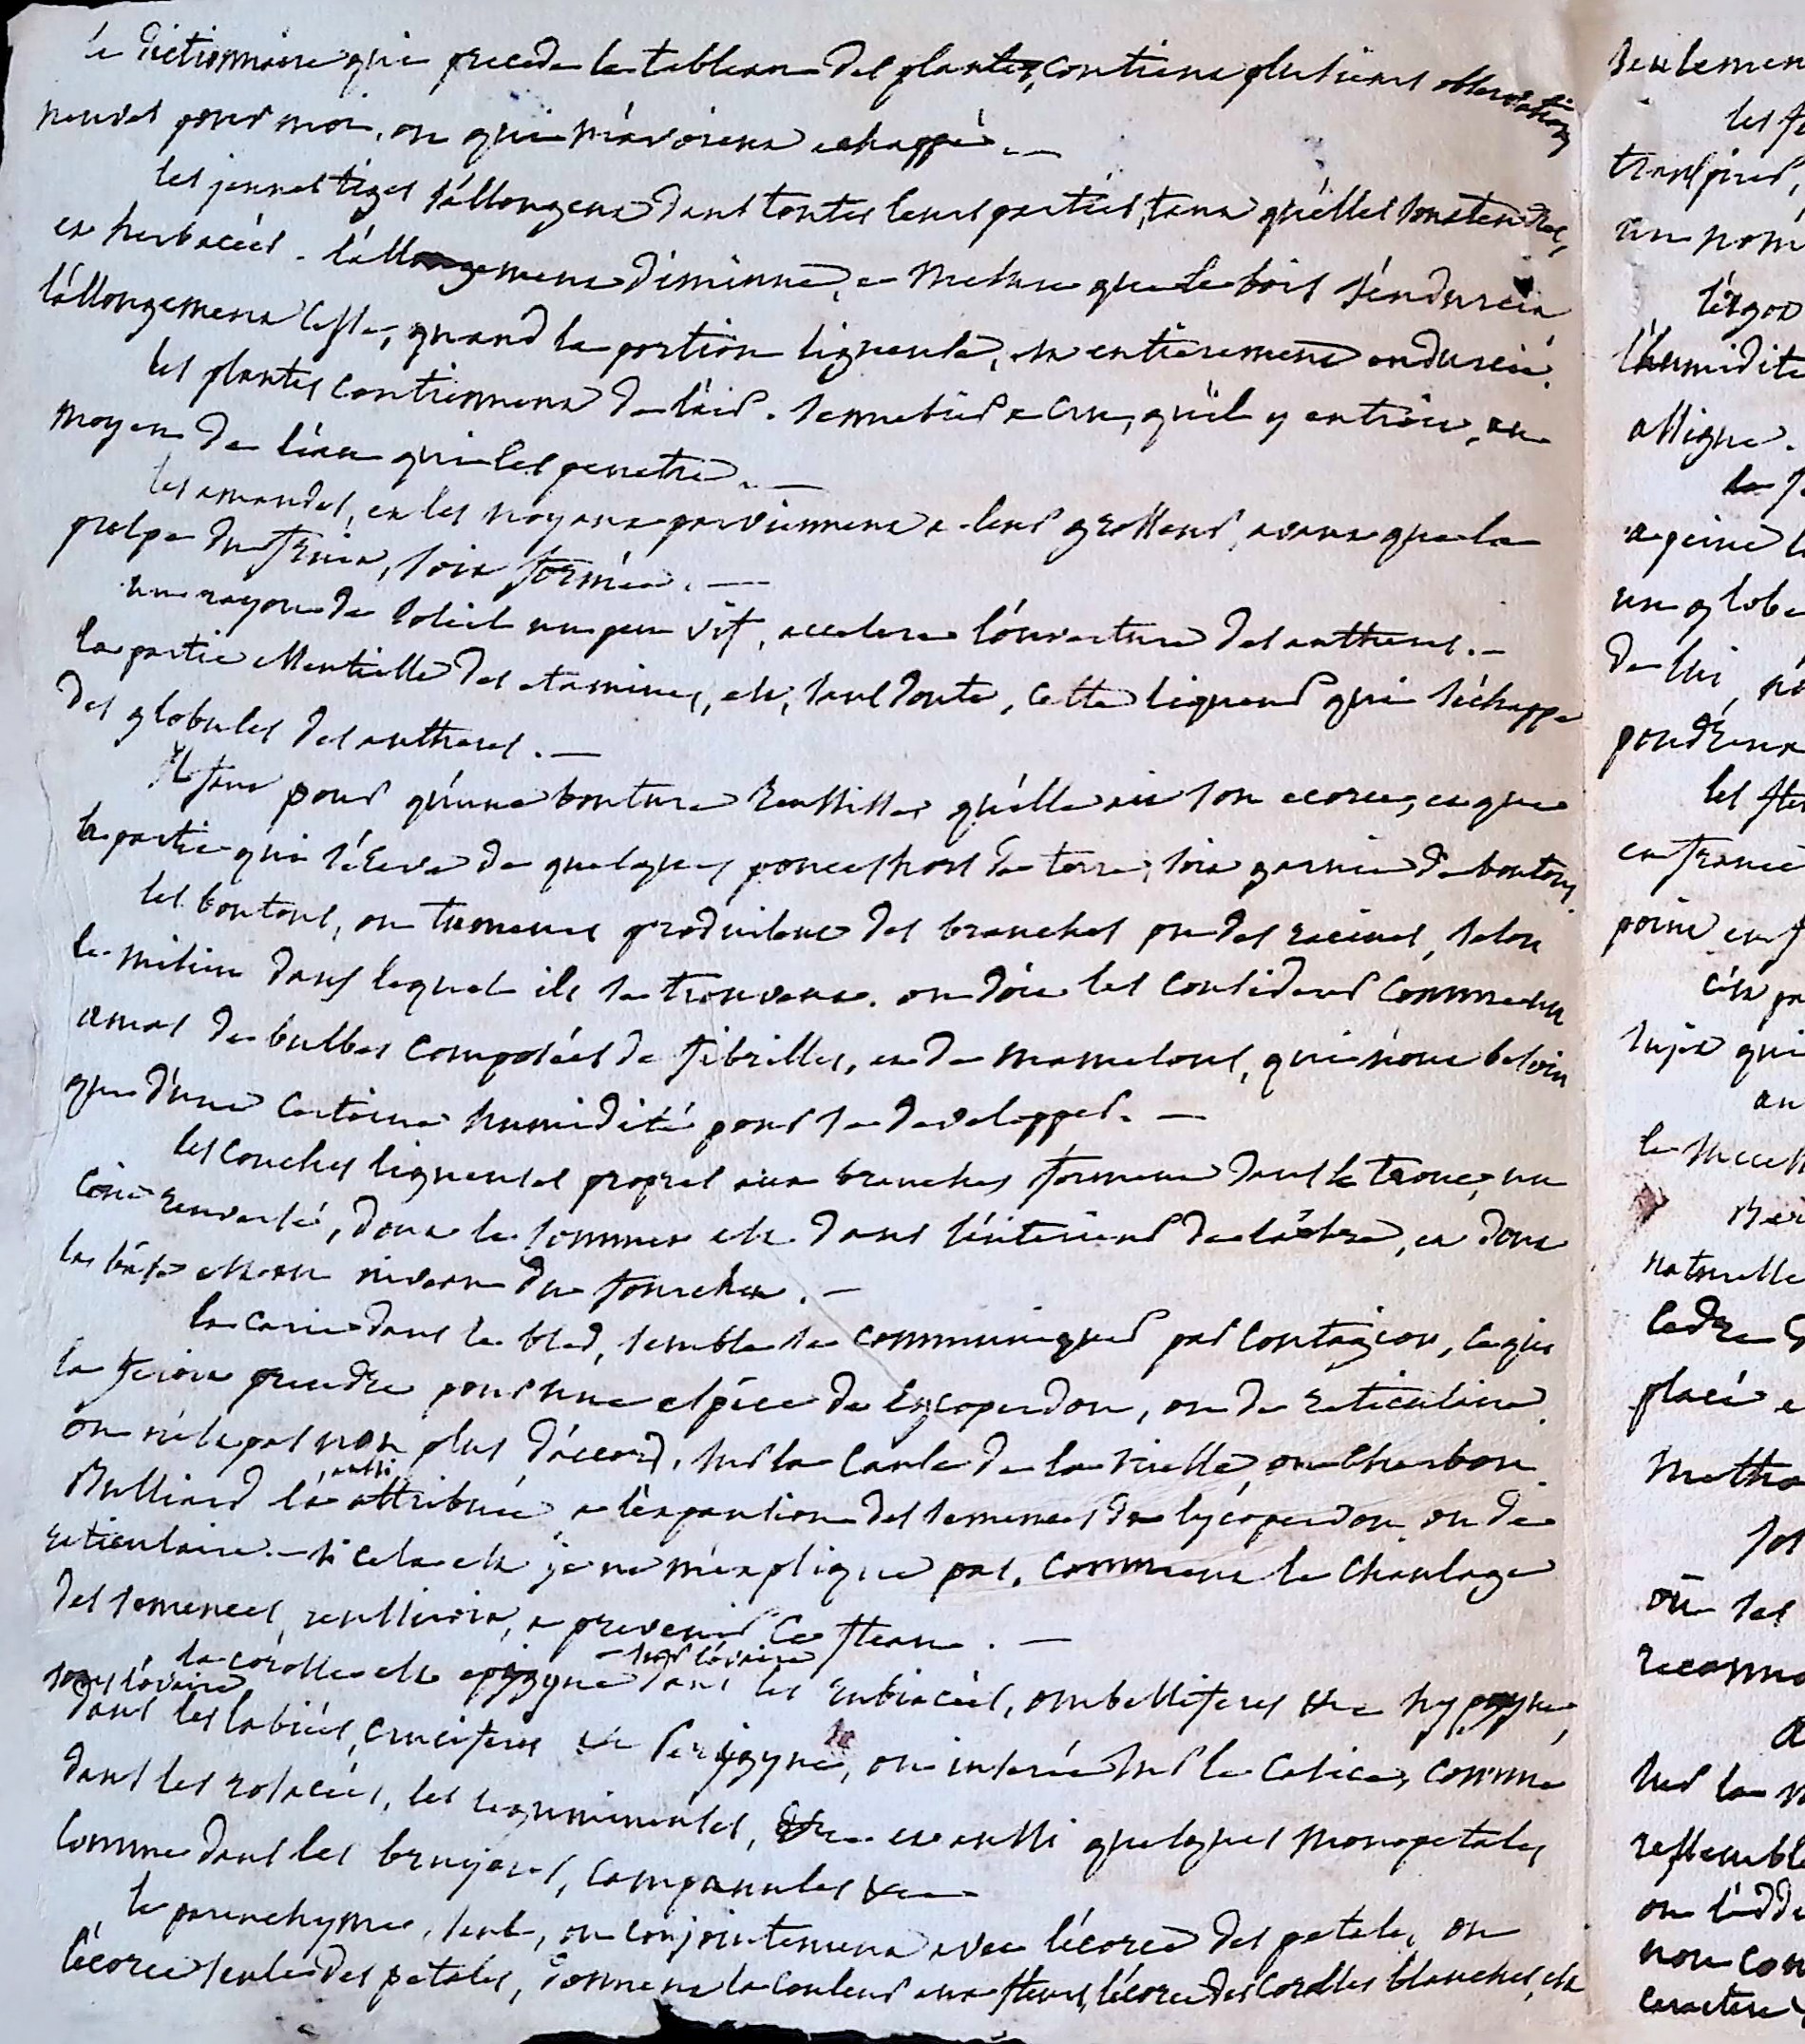 le dictionnaire qui precede le tableau des plantes, contient plusieurs observations
neuves pour moi, ou qui m'avoient echappé. —
les jeunes tiges s'allongent dans toutes leurs parties, tant qu'elles sont tendres,
et herbacées. l'allongement diminue, a mesure que le bois s'endurcit,
l'allongement cesse, quand la portion ligneuse, est entierement endurcie.
les plantes contiennent de l'air. sennebier a cru, qu'il y entroit, au
moyen de l'eau qui les penetre. —
les amandes, et les noyaux parviennent a leur grosseur, avant que la
pulpe du fruit, soit formée. —
un rayon de soleil un peu vif, accelere l'ouverture des antheres. —
la partie essentielle des etamines, est, sans doute, cette liqueur qui s'échappe
des globules des antheres. —
Il faut pour qu'une bouture reussisse qu'elle ait son ecorce, et que
la partie qui s'éleve de quelques pouces hors de terre, soit garnie de boutons.
les boutons, ou tumeurs produisent des branches ou des racines, selon
le milieu dans lequel ils se trouvent. on doit les considerer comme un
amas de bulbes composées de fibrilles, et de mamelons, qui n'ont besoin
que d'une certaine humidité pour se developper. —
les couches ligneuses propres aux branches forment dans le tronc, un
cône renversé, dont le sommet est dans l'interieur de l'arbre, et dont
la base est au niveau du fourchet. —
la carie dans le bled, semble se communiquer par contagion, ce qui
la feroit prendre pour une espéce de lycoperdon, ou de reticulaire.
on n'est pas non plus d'accord, sur la cause de la nielle, ou charbon.
Bulliard l'a aussi attribuée a l'expansion des semences de lycoperdon ou de
reticulaire. — si cela est je ne m'explique pas, comment le chaulage
des semences, reussiroit, a prevenir ce fleau. —
la corolle est epigyne - sur l'ovaire dans les rubiacées, ombelliferes &c hypogyne,
sous l'ovaire
dans les labiées, cruciferes &c Perigyne, ou inserée sur le calice, comme
dans les rosacées, les legumineuses, &c et aussi quelques monopetales
comme dans les bruyeres, campanules &c
le parenchyme, seul, ou conjointement avec l'écorce des petales, ou
l'écorce seule des petales, donnent la couleur aux fleurs, l'écorce des corolles blanches, est
seulemen
les
transpirer,
un nom
l'ergot
l'humidité
assigne.
a peine
un globe
de lui,
poudreux
les
en france
point
c'est
sujet qui
au
le
naturelle
cadre
placé
metho
où les
reconno
sur la
ressemble
on l'
non con
caractere